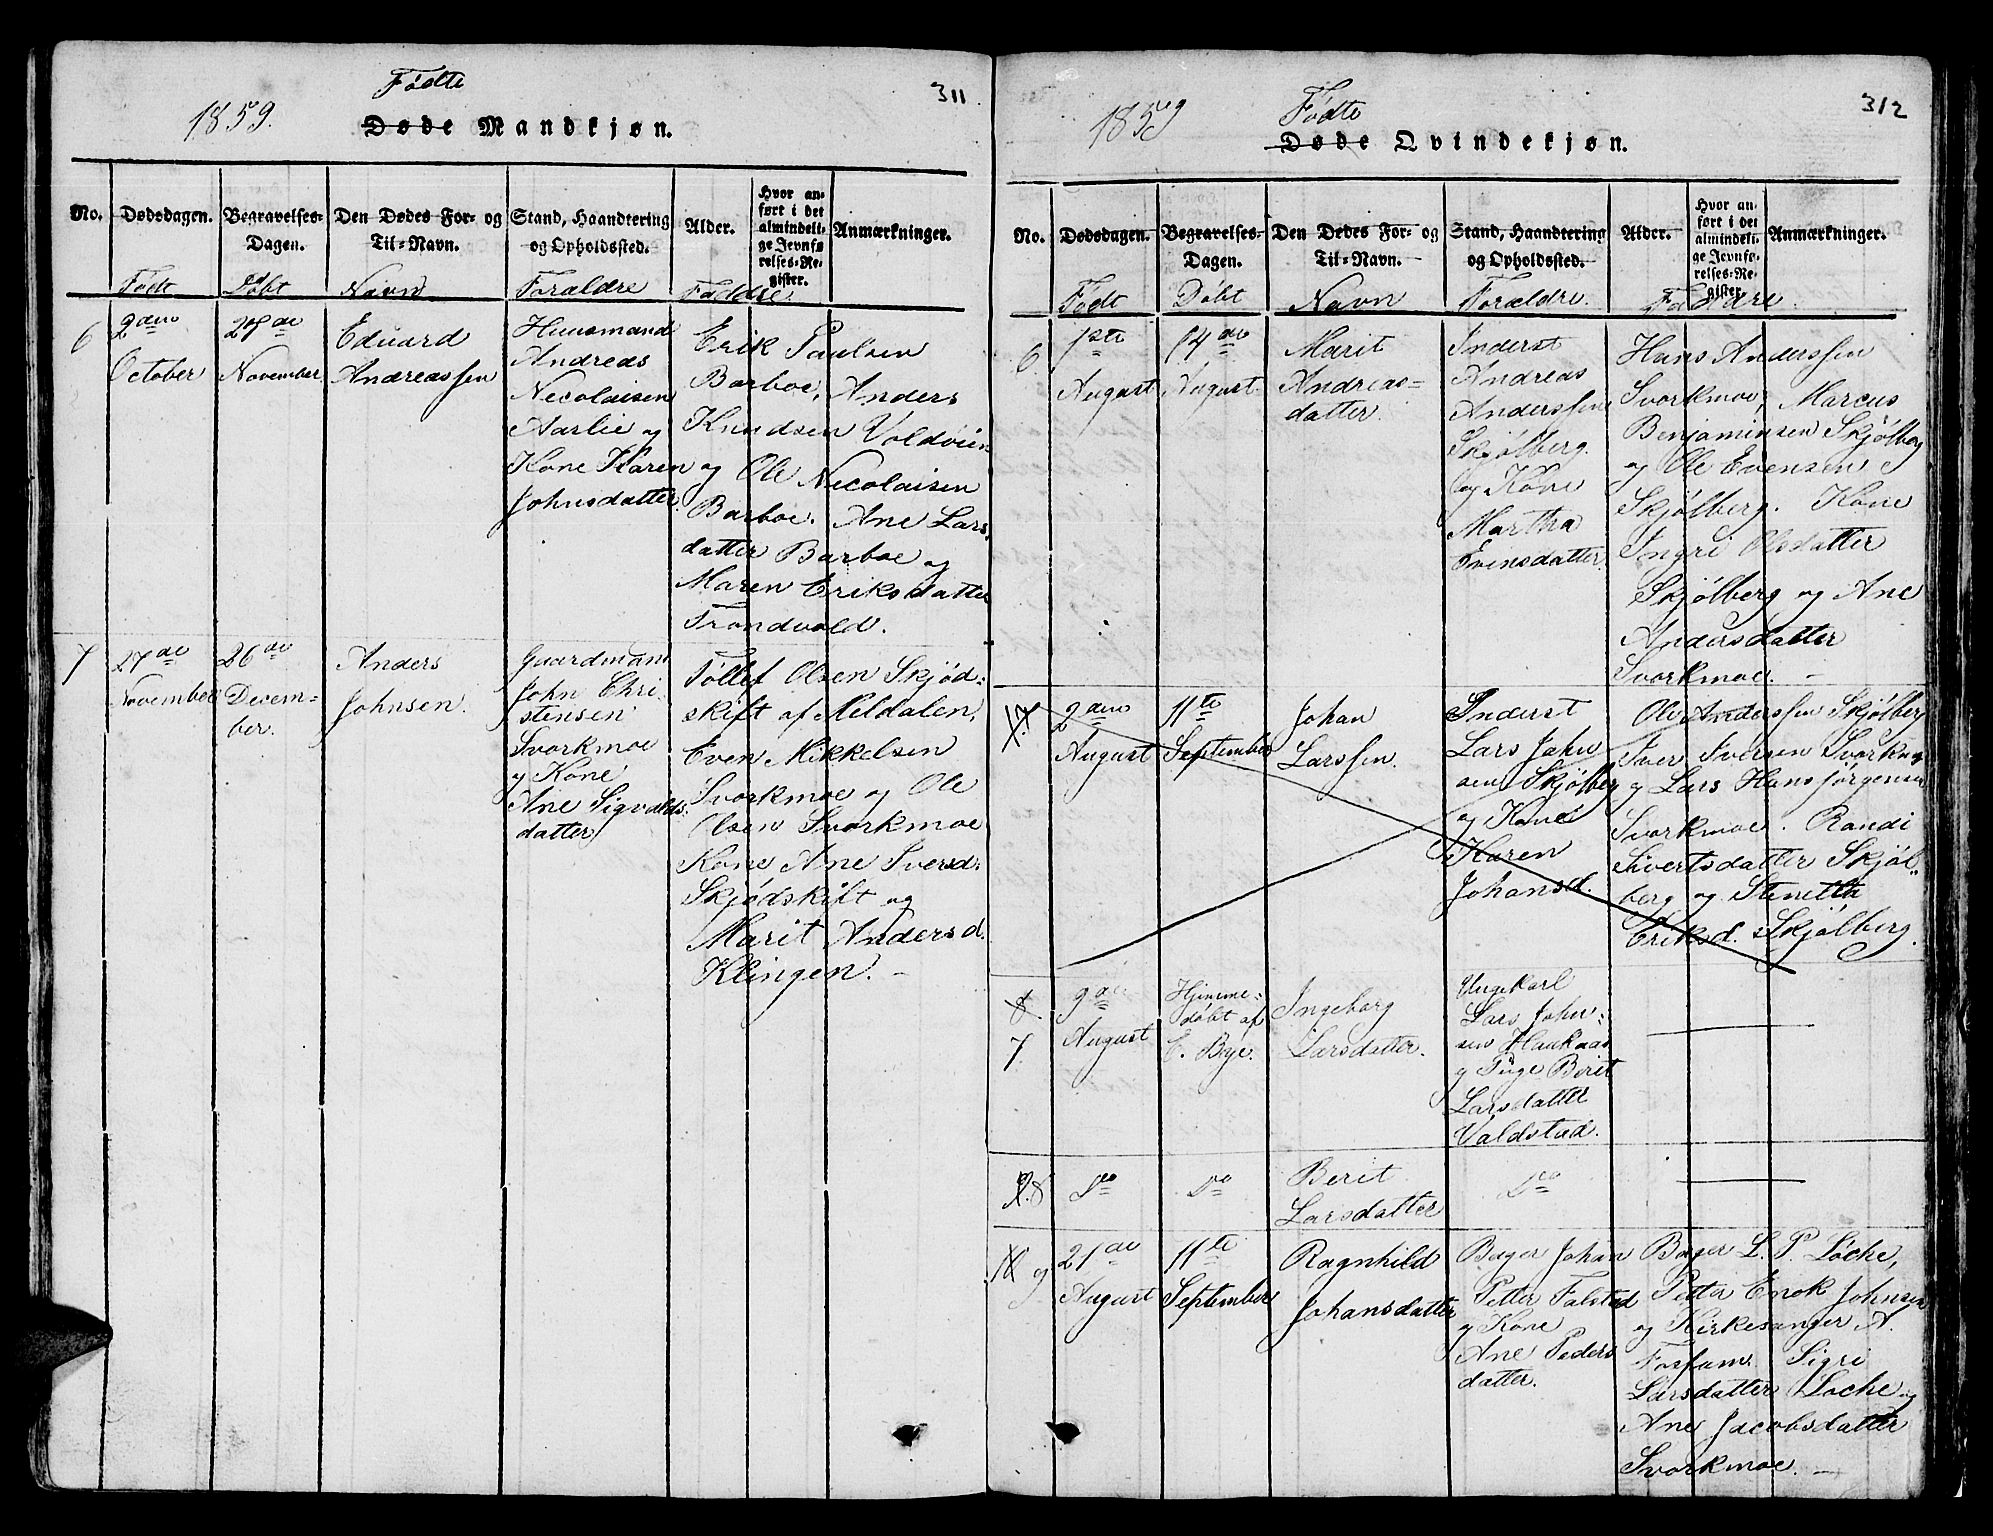 311
Fødte
1859.
Døde Mandkjøn.
No.
Dødsdagen.
Begravelses-
Dagen.
Den Dødes For- og
Til-Navn.
Stand, Haandtering
og Opholdssted.
Alder.
Hvor an-
ført i det
almindeli-
ge Jevnfø-
relses-Re-
gister.
Anmærkninger.
Født
Døbt
Navn
Forældre
Faddre
6
2den
October
27de
November
Eduard
Andreassen
Huusmand
Andreas
Necolaisen
Aarlie og
Kone Karen
Johnsdatter.
Erik Paulsen
Barboe, Anders
Knudsen Voldøien
og Ole Necolaisen
Barboe. Ane Lars
datter Barboe og
Maren Eriksdatter
Trondvold.
7
27de
November
26de
Decem-
ber.
Anders
Johnsen.
Gaardmand
John Chri-
stensen
Svorkmoe
og Kone
Ane Sigvalds
datter
Tollef Olsen Skjød-
skift af Meldalen,
Even Mikkelsen
Svorkmoe og Ole
Olsen Svorkmoe
Kone Ane Iversd:
Skjødskift og
Marit Andersd.
Klingen. –
312
Fødte
1859
Døde Qvindekjøn.
No.
Dødsdagen.
Begravelses-
Dagen.
Den Dødes For- og
Til-Navn.
Stand, Haandtering
og Opholdssted.
Alder.
Hvor an-
ført i det
almindeli-
ge Jevnfø-
relses-Re-
gister.
Anmærkninger.
Født
Døbt
Navn
Forældre.
Faddre.
6
1ste
August
14de
August
Marit
Andreas-
datter.
Inderst
Andreas
Anderssen
Skjølberg.
og Kone
Martha
Evensdatter.
Hans Anderssen
Svorkmoe, Marcus
Benjaminsen Skjølberg
og Ole Evensen
Skjølberg. Kone
Ingri Olsdatter
Skjølberg og Ane
Andersdatter
Svorkmoe. –
7.
2den
August
11te
September
Johan
Larssen.
Inderst
Lars Johan
sen Skjølberg
og Kone
Karen
Johansd.
Ole Anderssen Skjølberg
Iver Iversen Svorkmoe
og Lars Hans Jørgensen
Svorkmoe. Randi
Sivertsdatter Skjøl-
berg og Stenetta
Eriksd. Skjølberg.
8
7.
9de
August
Hjemme-
døbt af
E. Bye.
Ingeborg
Larsdatter.
Ungekarl
Lars John-
sen Haakaas
og Pige Berit
Larsdatter
Valdstad.
8
Do
Do
Berit
Larsdatter
Do
10 9
21de
August
11te
September
Ragnhild
Johansdatter
Bøger Johan
Petter Falstad
og Kone
Ane Peders
datter.
Bøger L. P. Løcke,
Petter Enok Johnsen
og Kirkesanger A.
Fosfam. Sigri
Larsdatter Løcke og
Ane Jacobsdatter
Svorkmoe. –